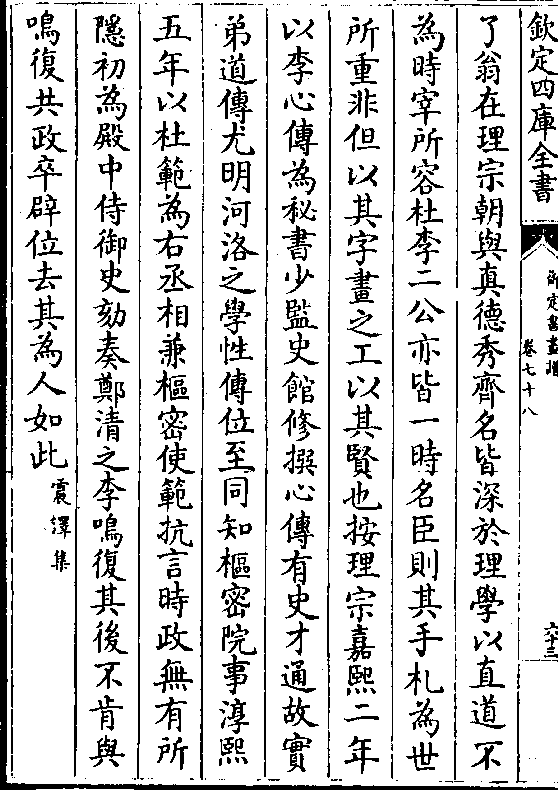 欽定四庫全書
御定書畫譜
卷七十八
六十三
了翁在理宗朝與真德秀齊名皆深於理學以直道不
為時宰所容杜李二公亦皆一時名臣則其手札為世
所重非但以其字畫之工以其賢也按理宗嘉熙二年
以李心傳為秘書少監史館修撰心傳有史才通故實
弟道傳尤明河洛之學性傳位至同知樞密院事淳熙
五年以杜範為右丞相兼樞密使範抗言時政無有所
隱初為殿中侍御史劾奏鄭清之李鳴復其後不肯與
鳴復共政卒辟位去其為人如此震澤集